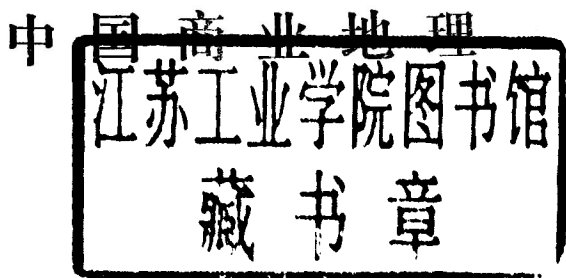 中国商业地理
江苏工业学院图书馆
藏书章